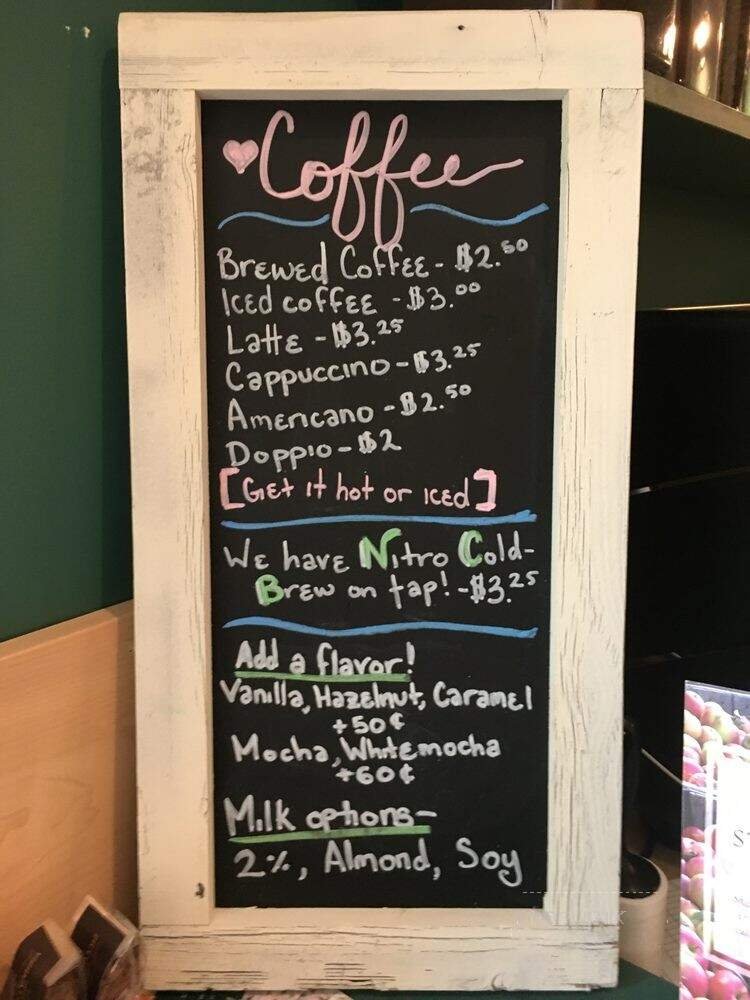 Coffee
Brewed Coffee - $2.50
Iced coffee - $3.00
Latte - $3.25
Cappuccino - $3.25
Americano - $2.50
Doppio - $2
[Get it hot or iced]
We have Nitro Cold-
Brew on tap! - $3.25
Add a flavor!
Vanilla, Hazelnut, Caramel
+50¢
Mocha, White mocha
+60¢
Milk options-
2%, Almond, Soy